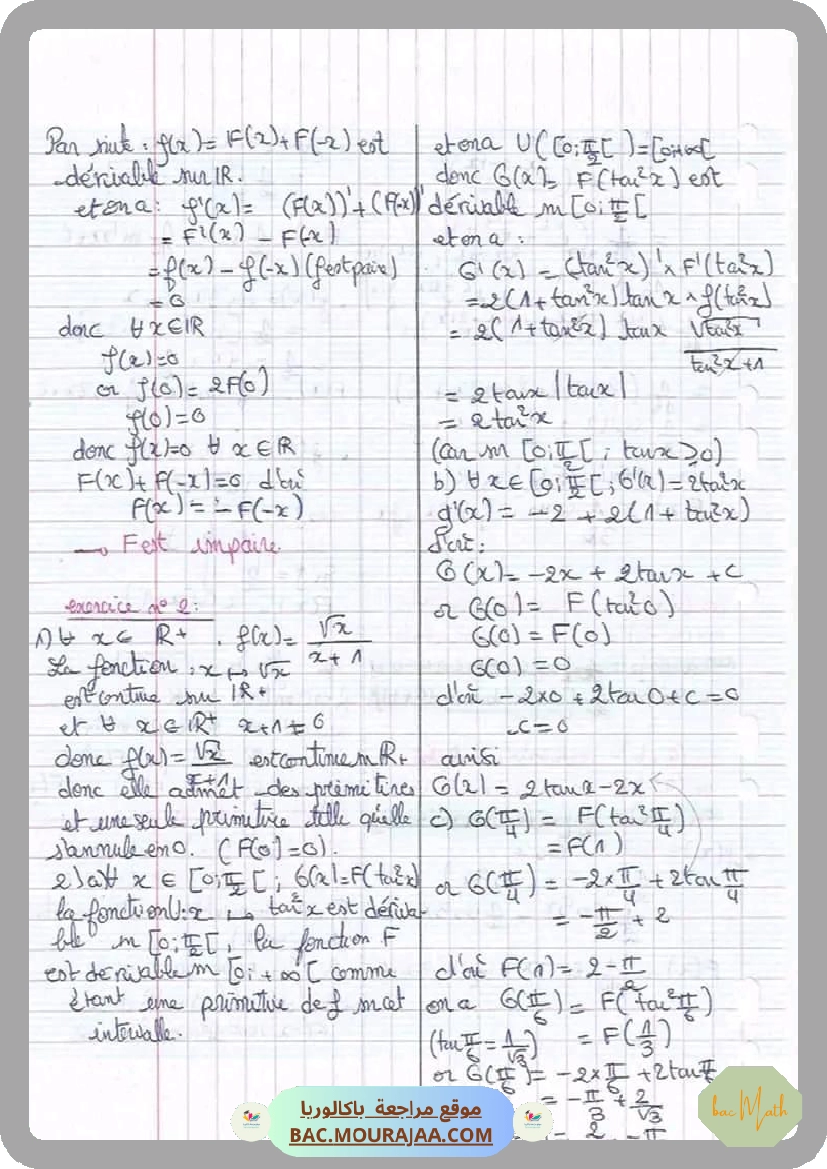 Par suite : φ(x) = F(x) + F(-x) est
dérivable sur IR.
et on a : φ'(x) = (F(x))' + (F(-x))'
= F'(x) - F(-x)
= f(x) - f(-x) (f est paire)
= 0
donc ∀ x ∈ IR
φ(x) = 0
or φ(0) = 2F(0)
φ(0) = 0
donc φ(x) = 0 ∀ x ∈ IR
F(x) + F(-x) = 0 d'où
F(x) = - F(-x)
→ F est impaire.
exercice n° 2 :
1) ∀ x ∈ IR+ , f(x) = √x / (x + 1)
La fonction : x ↦ √x
est contine sur IR+
et ∀ x ∈ IR+ x + 1 ≠ 0
donc f(x) = √x / (x+1) est continue sur IR+
donc elle admet des primitives
et une seule primitive telle qu'elle
s'annule en 0. (F(0) = 0).
2) a) ∀ x ∈ [0; π/2 [ ; G(x) = F(tan²x)
la fonction U : x ↦ tan²x est dériva-
ble sur [0; π/2 [, la fonction F
est dérivable sur [0; +∞ [ comme
étant une primitive de f sur cet
intervalle.
et on a U([0; π/2 [) = [0; +∞[
donc G(x) = F(tan²x) est
dérivable sur [0; π/2 [
et on a :
G'(x) = (tan²x)' × F'(tan²x)
= 2(1 + tan²x) tan x × f(tan²x)
= 2(1 + tan²x) tan x √tan²x / (tan²x + 1)
= 2 tan x |tan x|
= 2 tan²x
(car sur [0; π/2 [ ; tan x ≥ 0)
b) ∀ x ∈ [0; π/2 [ ; G'(x) = 2 tan²x
g'(x) = -2 + 2(1 + tan²x)
d'où :
G(x) = -2x + 2 tan x + c
or G(0) = F(tan²0)
G(0) = F(0)
G(0) = 0
d'où -2×0 + 2 tan 0 + c = 0
c = 0
ainsi
G(x) = 2 tan x - 2x
c) G(π/4) = F(tan² π/4)
= F(1)
or G(π/4) = -2 × π/4 + 2 tan π/4
= -π/2 + 2
d'où F(1) = 2 - π/2
on a G(π/6) = F(tan² π/6)
(tan π/6 = 1/√3) = F(1/3)
or G(π/6) = -2 × π/6 + 2 tan π/6
= -π/3 + 2/√3
موقع مراجعة باكالوريا
BAC.MOURAJAA.COM
bac Math